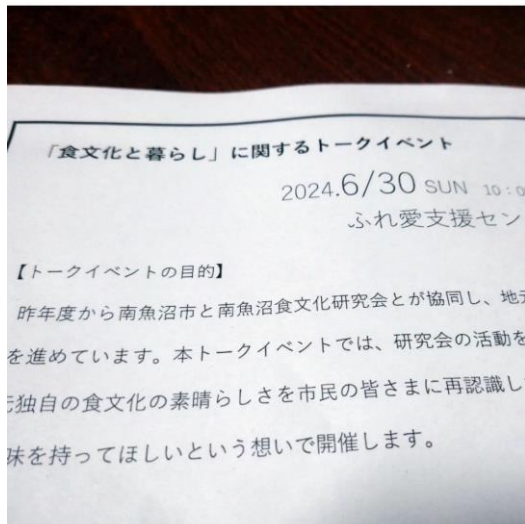 「食文化と暮らし」に関するトークイベント
2024.6/30 SUN 10:0
ふれ愛支援セン
【トークイベントの目的】
昨年度から南魚沼市と南魚沼食文化研究会とが協同し、地元
を進めています。本トークイベントでは、研究会の活動を
元独自の食文化の素晴らしさを市民の皆さまに再認識し
味を持ってほしいという想いで開催します。